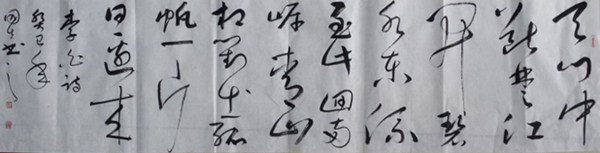 天门中
断楚江
开碧
水东流
至此迴两
岸青山
相对出孤
帆一片
日边来
李白诗
癸巳年